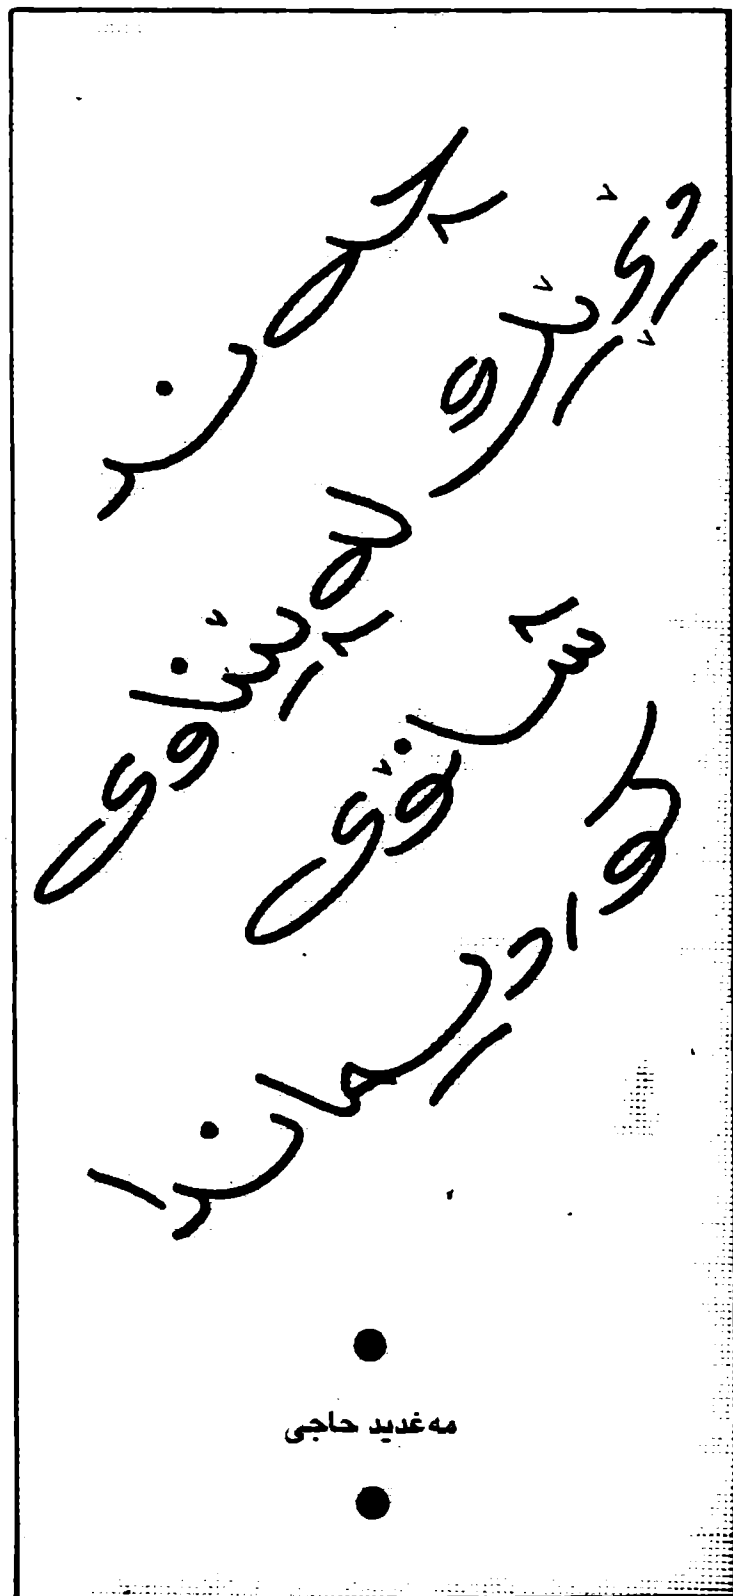 چەند دێڕێک
لە پێناوی شانۆی
کوردیماندا
مەغدید حاجی